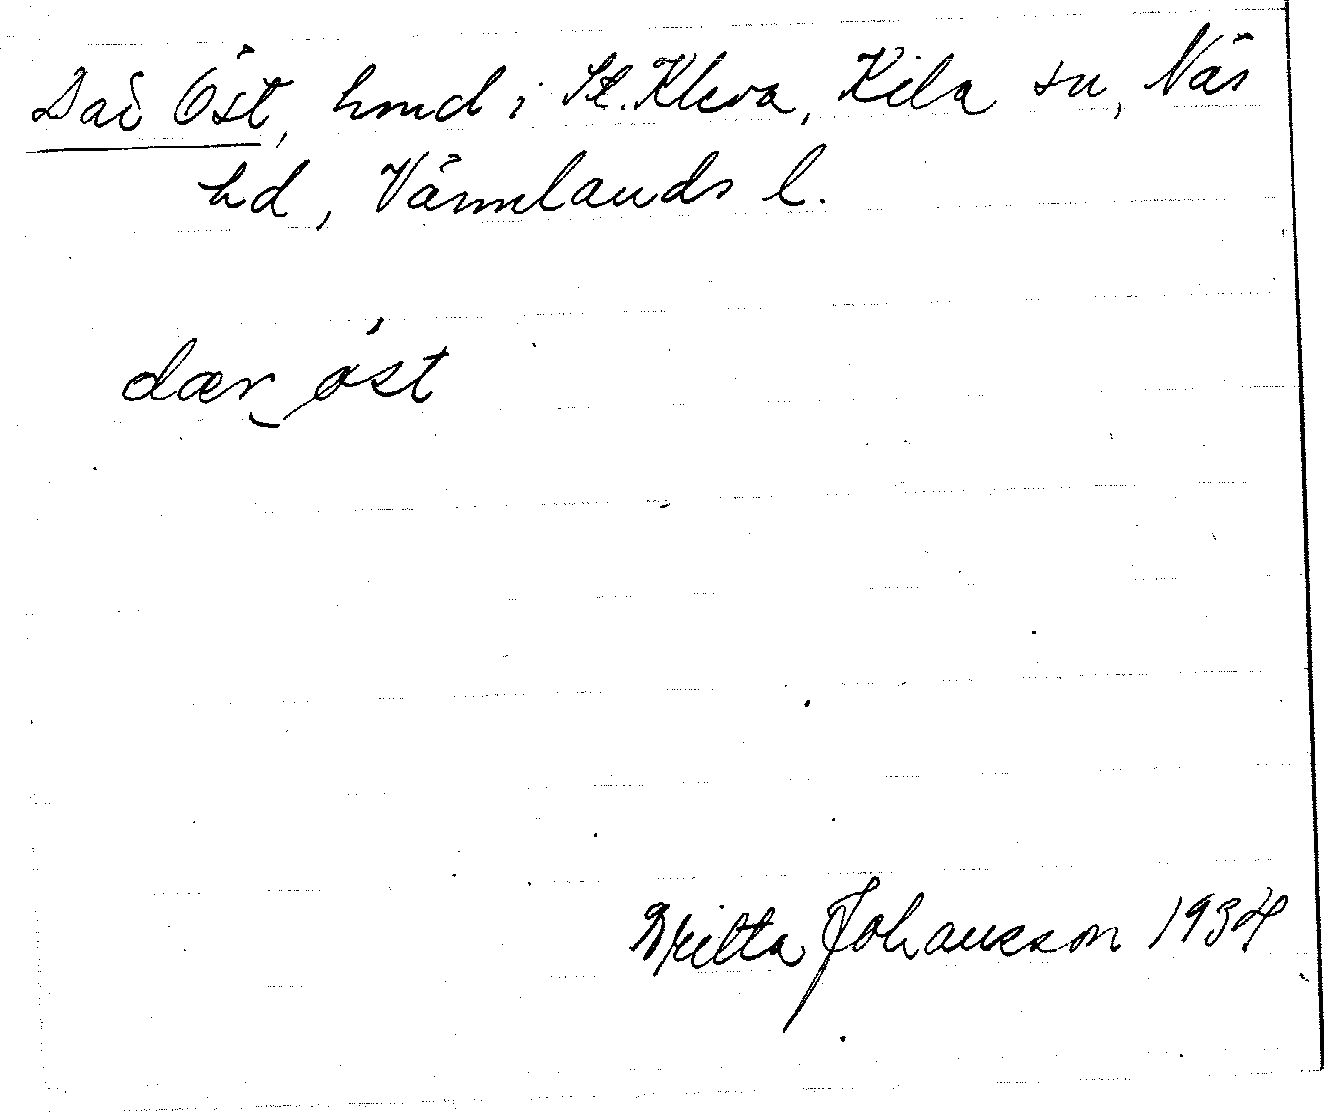 Där Öst, hmd i St. Kleva, Kila sn, Näs
hd, Värmlands l.
dær‿öst
Britta Johansson 1934